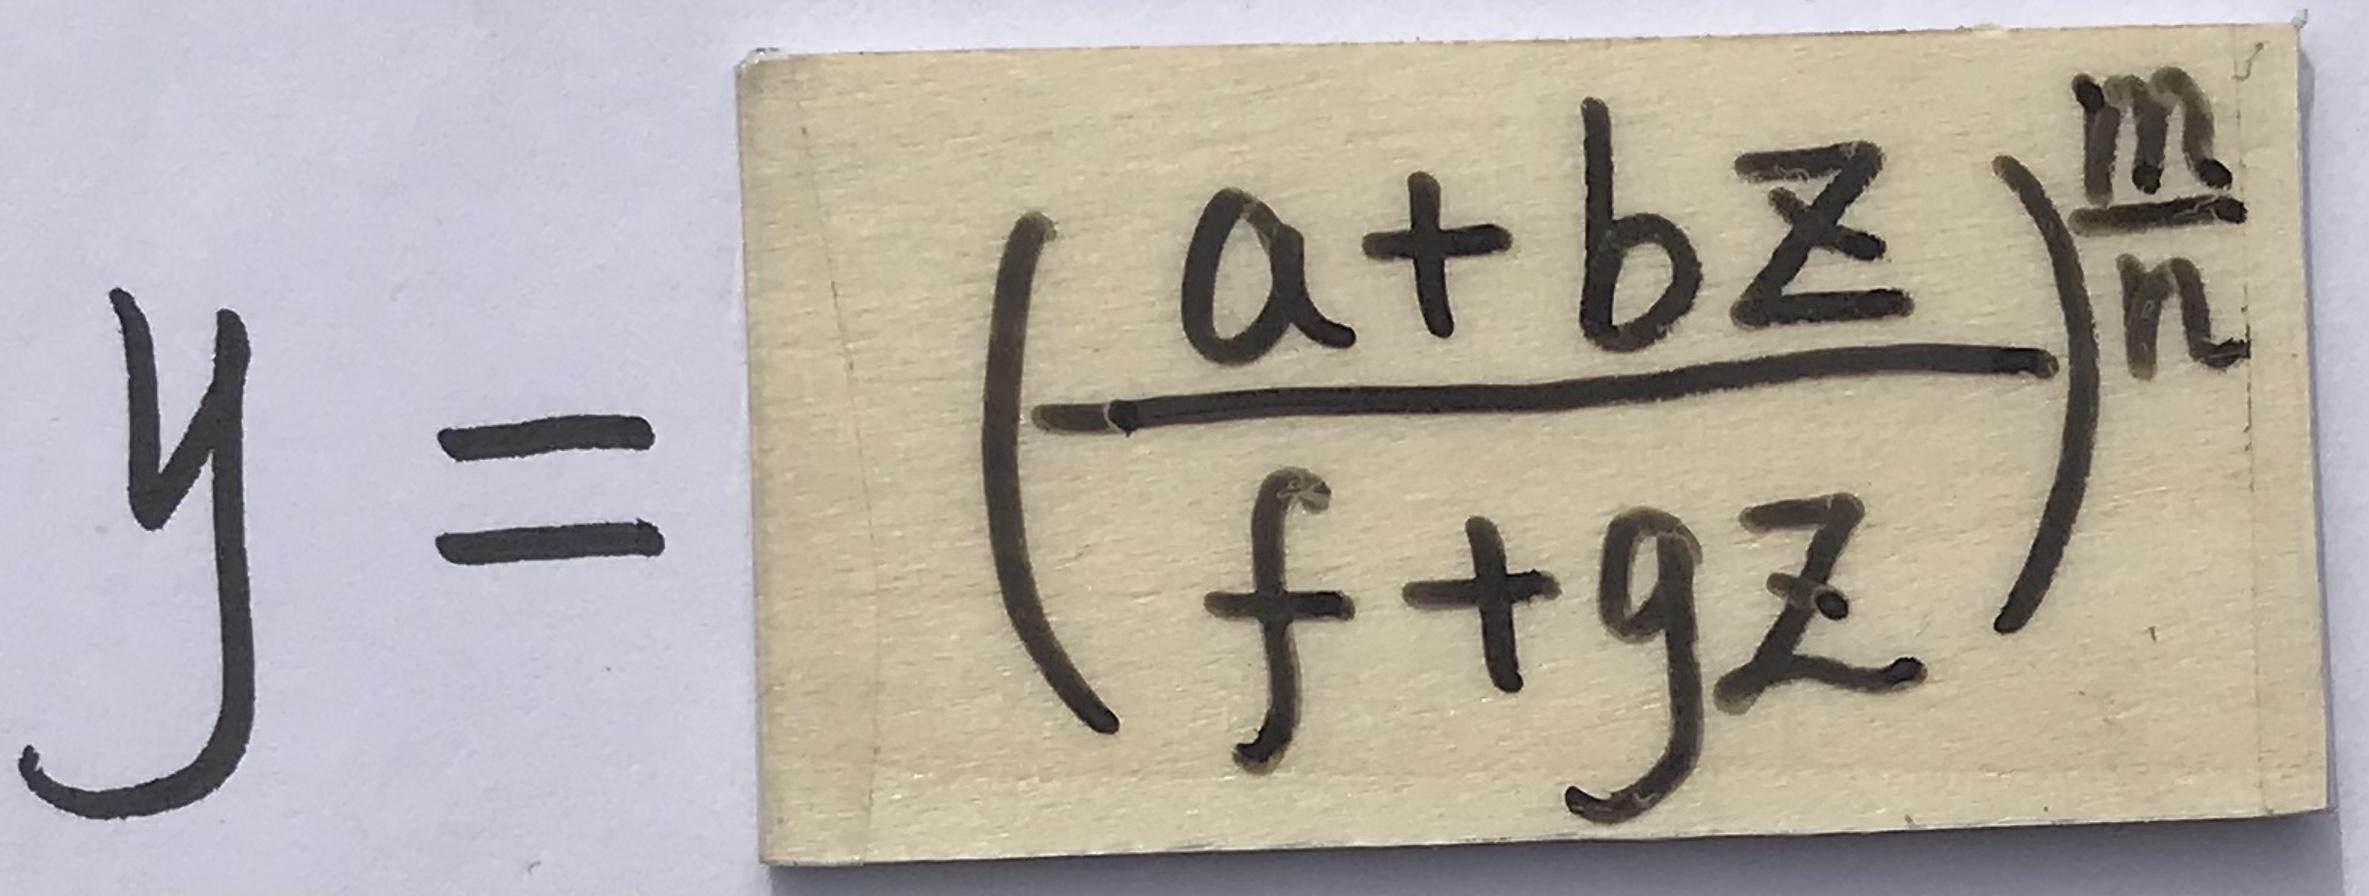 y = ( (a + bz) / (f + gz) )^(m/n)